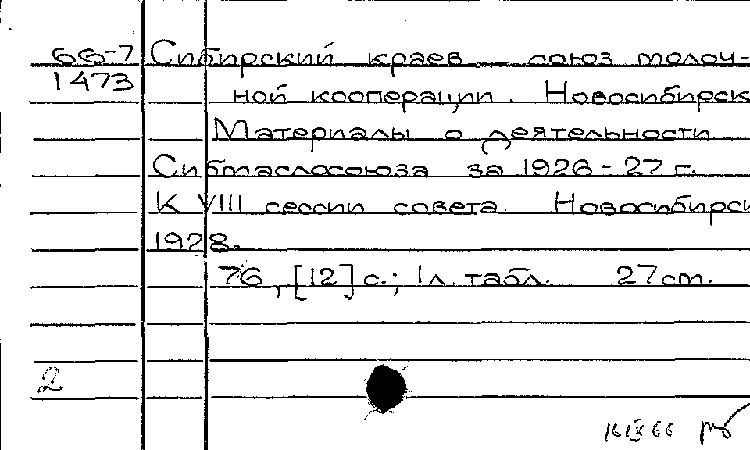 66-7 Сибирский краев союз молоч-
1473 ной кооперации. Новосибирск
Материалы о деятельности
Сибмаслосоюза за 1926-27 г.
К VIII сессии совета. Новосибирск
1928.
76, [12] с.; 1 л. табл. 27 см.
2